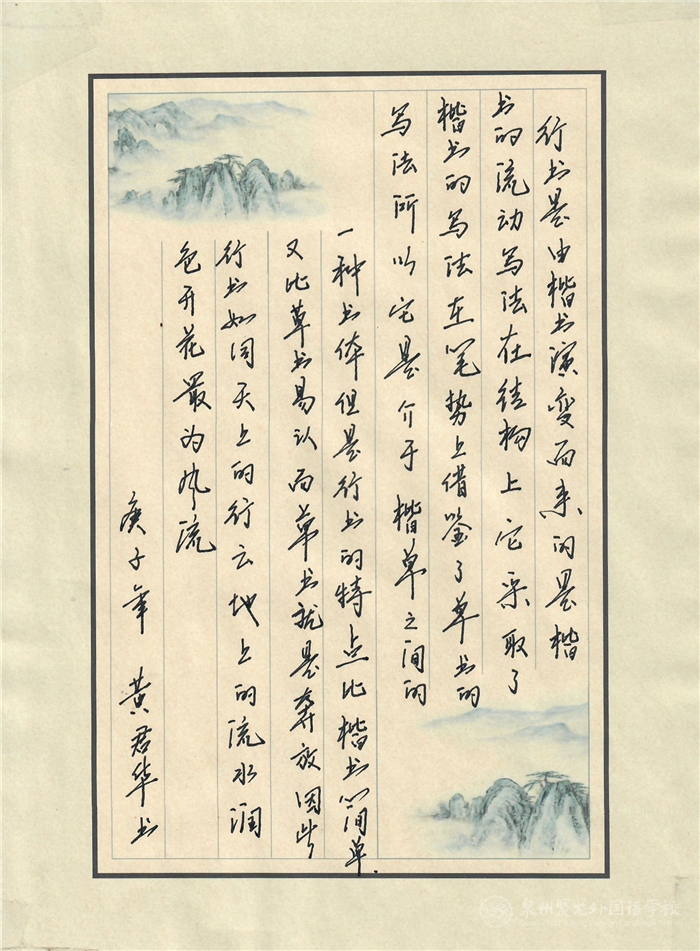 行书是由楷书演变而来的是楷
书的流动写法在结构上它采取了
楷书的写法在笔势上借鉴了草书的
写法所以它是介于楷草之间的
一种书体但是行书的特点比楷书简单
又比草书易认而草书就是奔放因此
行书如同天上的行云地上的流水润
色开花最为风流
庚子年 黄君华书
泉州聚龙外国语学校